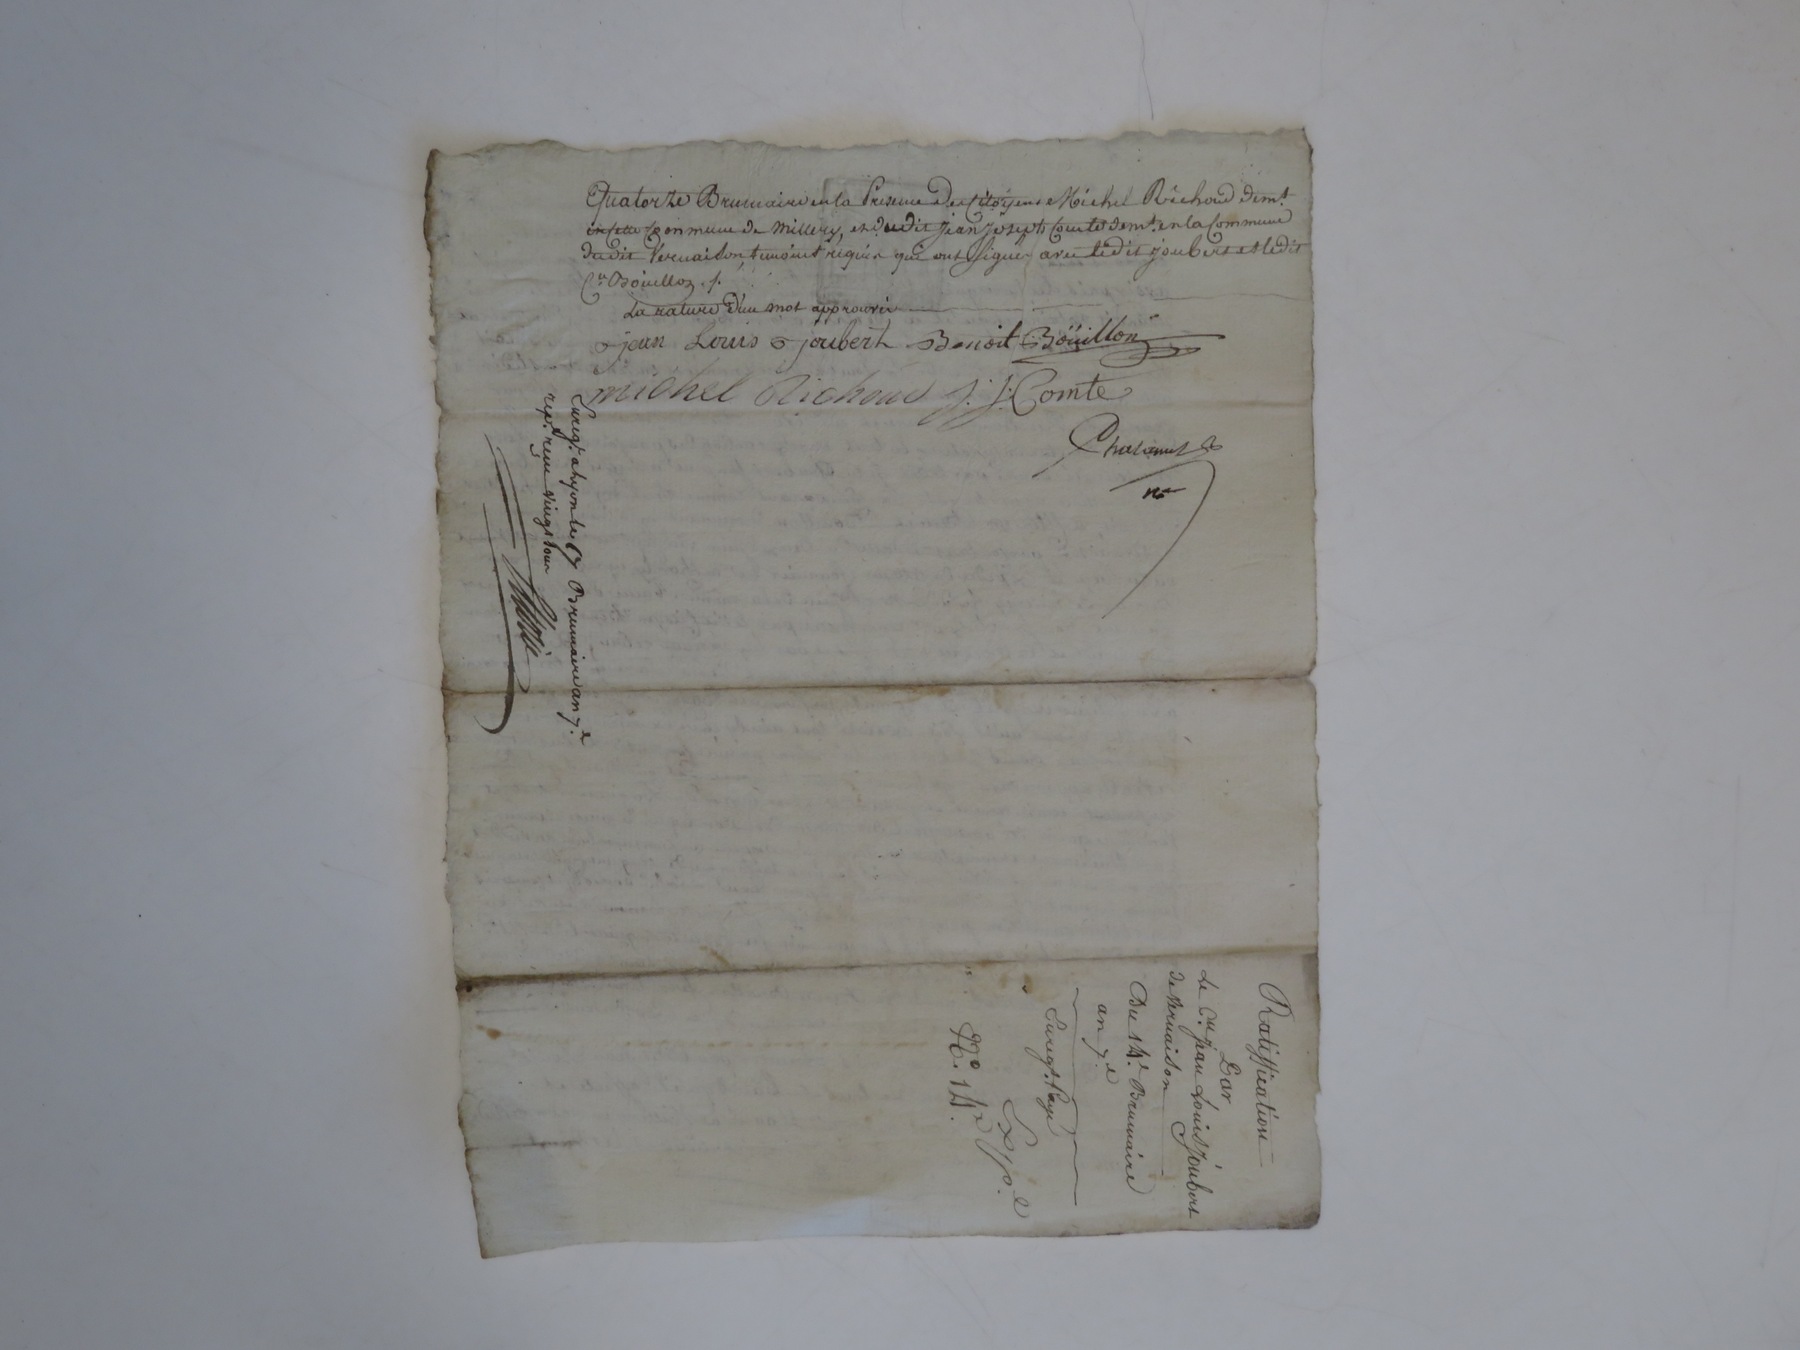 Quatorze Brumaire en la Presence des Citoyens Michel Richoud demt.
en cette Commune de Millery, et dudit jean joseph Comte demt. en la Commune
dudit Vernaison, temoins requis qui ont signer avec ledit joubert et ledit
Cen. Boüillon ./.
La rature d'un mot approuvée
jean Louis joubert Benoit Boüillon
michel Richoud J. J. Comte
Chatanut
nre
Enregt. a Lyon le 17 Brumaire an 7.e
rep.t reçu vingt sous
Ratiffication
Par
Le Cen. jean Louis Joubert
de Vernaison
Du 14.e Brumaire
an 7.e
Enregt. Payé
Exp.on
N.o 14.